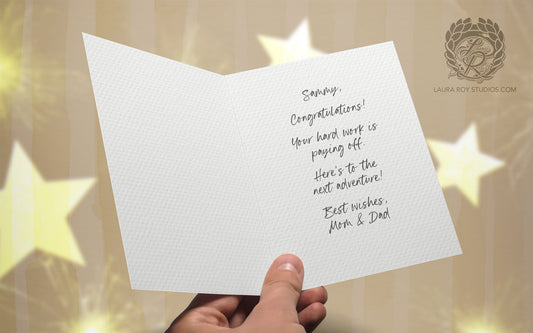 LAURA ROY STUDIOS.COM
Sammy,
Congratulations!
Your hard work is
paying off.
Here's to the
next adventure!
Best wishes,
Mom & Dad